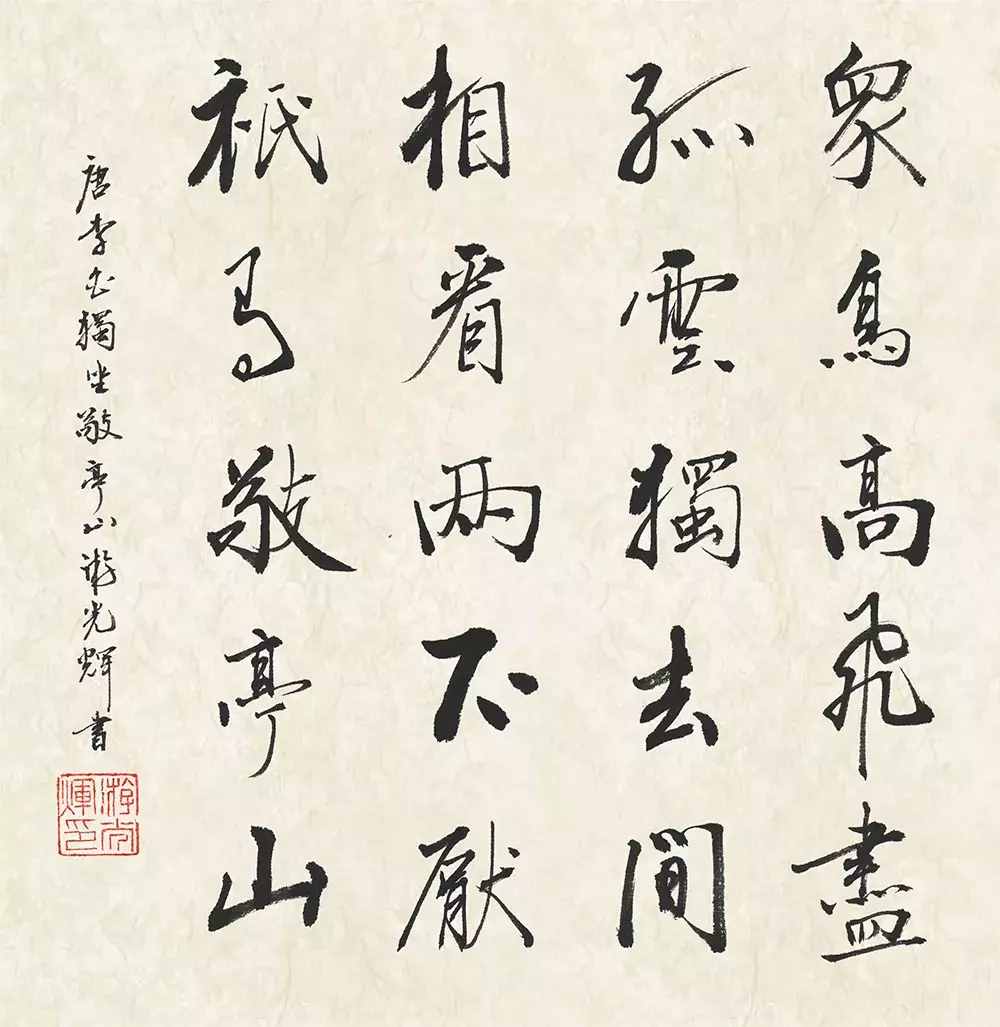 眾鳥高飛盡
孤雲獨去閒
相看兩不厭
祇有敬亭山
唐李白獨坐敬亭山游光輝書
游光輝印